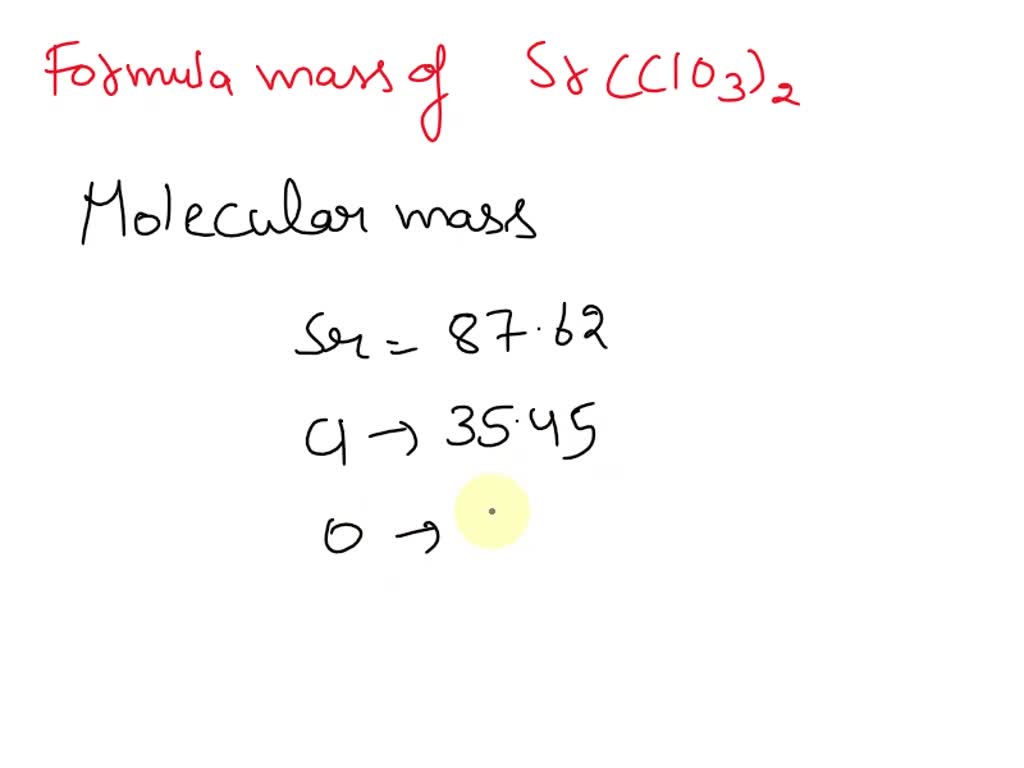 Formula mass of Sr(ClO3)2
Molecular mass
Sr = 87.62
Cl → 35.45
O →